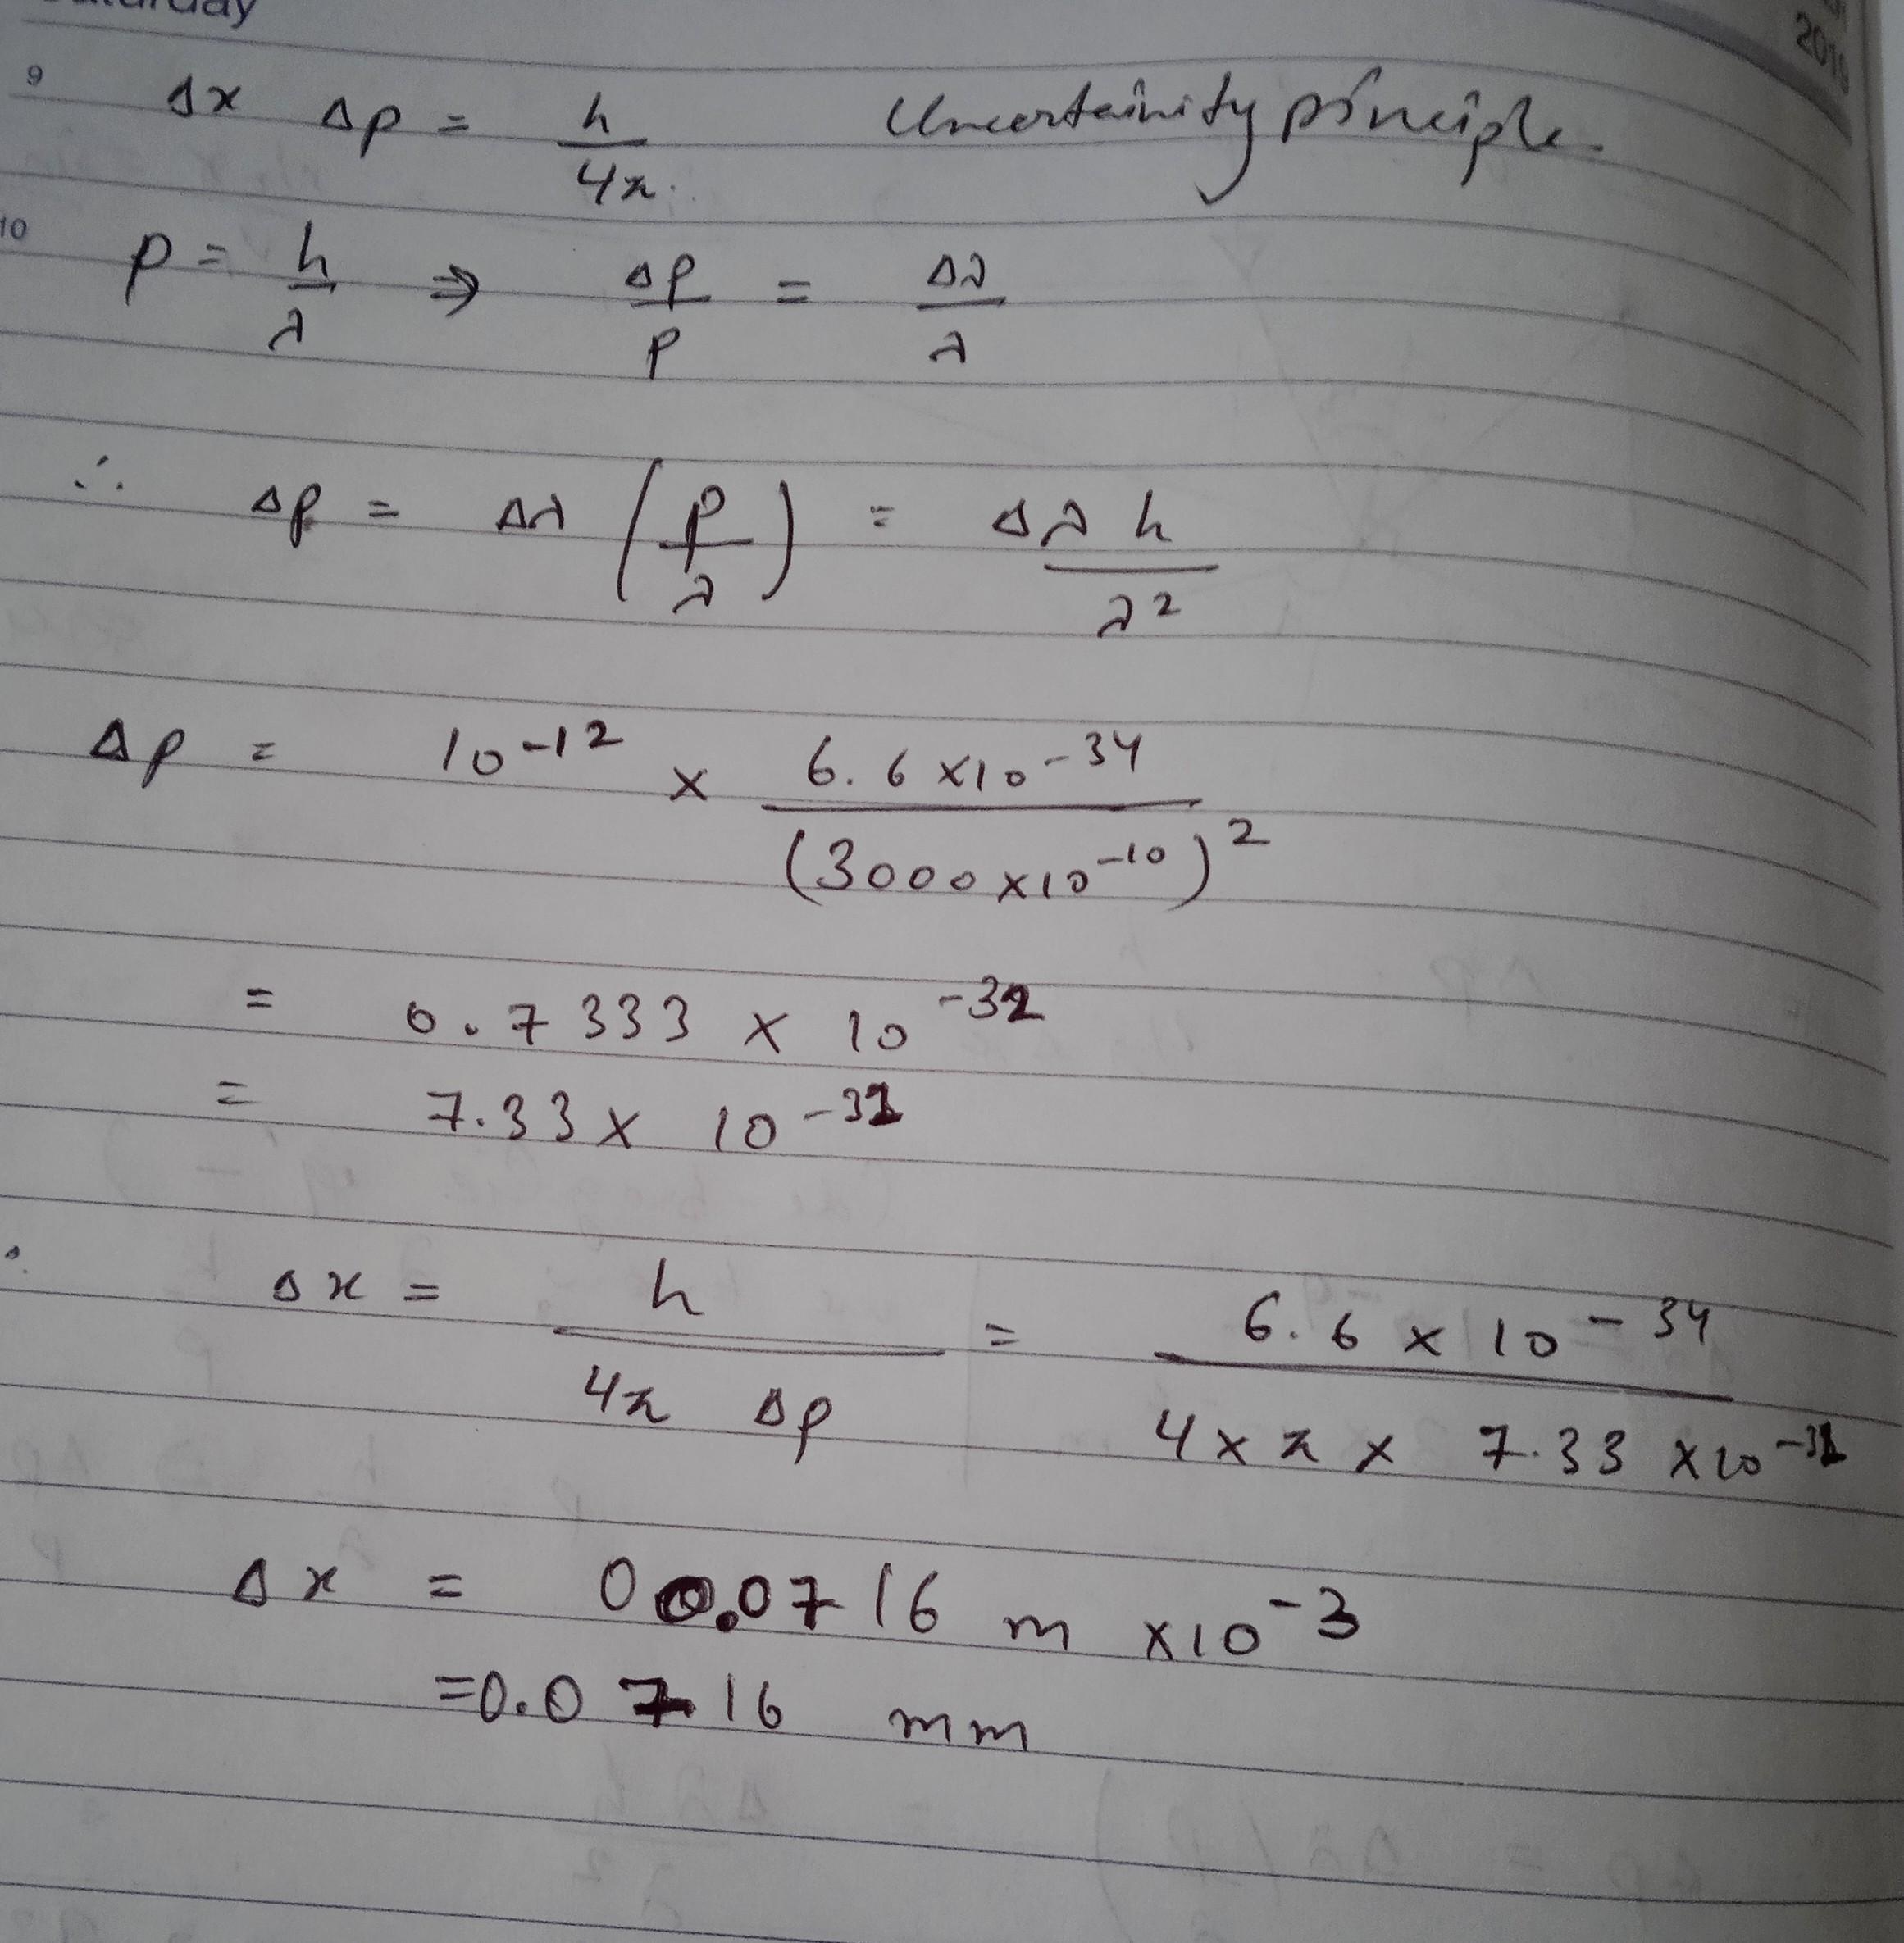 Saturday
2019
9 Δx Δp = h/4π. Uncertainity principle.
10 p = h/λ ⇒ Δp/p = Δλ/λ
∴ Δp = Δλ (p/λ) = Δλ h/λ²
Δp = 10⁻¹² × 6.6 × 10⁻³⁴/(3000 × 10⁻¹⁰)²
= 0.7333 × 10⁻³²
= 7.33 × 10⁻³³
Δx = h/4π Δp = 6.6 × 10⁻³⁴/4 × π × 7.33 × 10⁻³³
Δx = 00.0716 m × 10⁻³
= 0.0716 mm